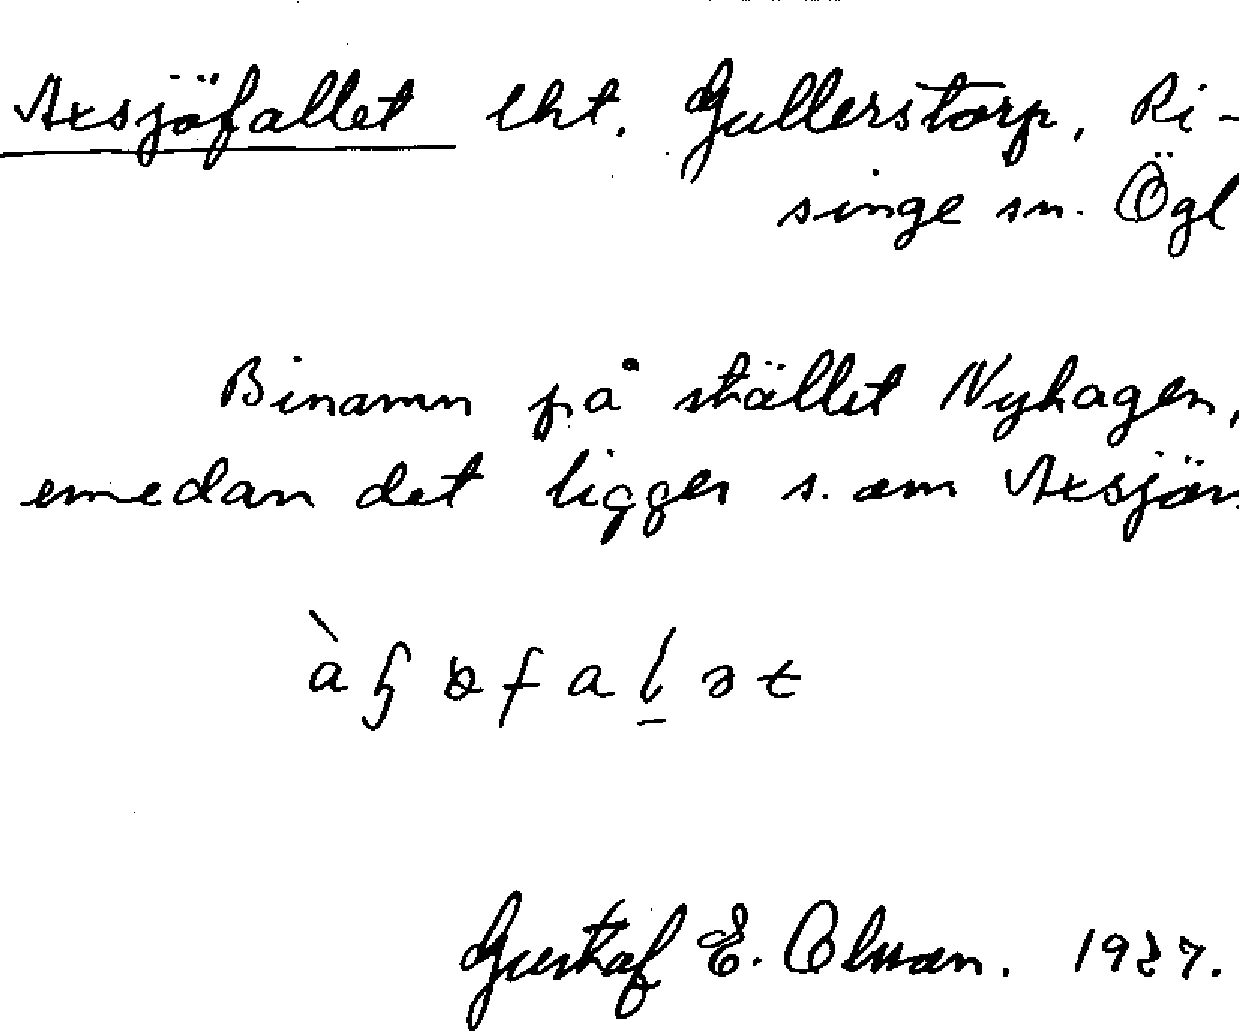 Axsjöfallet lht. Gullerstorp, Ri-
singe sn. Ögl
Binamn på stället Nyhagen,
emedan det ligger s. om Axsjön
Gustaf E. Olsson.